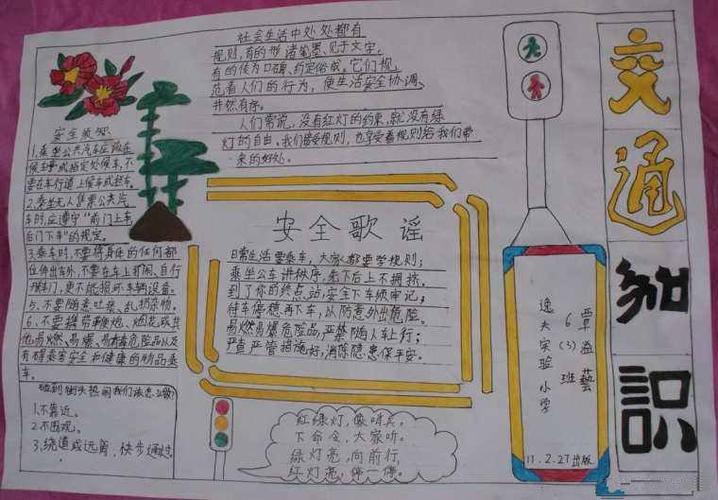 交通知识
社会生活中处处都有
规则,有的形诸笔墨、见于文字,
有的传为口碑、约定俗成。它们规
范着人们的行为,使生活安全协调、
井然有序。
人们常说,没有红灯的约束,就没有绿
灯的自由。我们要受规则,也享受着规则给我们带
来的好处。
安全须知
1、乘坐公共汽车应该在
候车亭或指定处候车,不
要在车行道上候车或赶车。
2、乘坐无人售票公共汽
车时,应遵守“前门上车
后门下车”的规定。
3、乘车时,不要将身体的任何部
位伸出车外,不要在车上打闹、自行
开车门,更不能损坏车辆设备。
5、不要随意吐痰、乱扔杂物。
6、不要携带鞭炮、烟花或其
他易燃、易爆、有毒危险品以及
有碍乘客安全和健康的物品乘
车。
碰到街头热闹我们该怎么做?
1、不靠近。
2、不围观。
3、绕道或远离,快步通过。
安全歌谣
日常生活要乘车,大家都要学规则;
乘坐公车讲秩序,先下后上不拥挤,
到了你的终点站,安全下车须牢记;
待车停稳再下车,以防意外出危险。
易燃易爆危险品,严禁随人车上行;
严查严管措施好,消除隐患保平安。
红绿灯,像哨兵,
下命令,大家听。
绿灯亮,向前行,
红灯亮,停一停。
逸夫实验小学
6(3)班
覃益藝
11.2.27出版